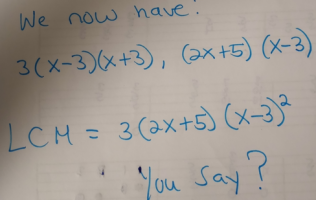 We now have:
3(x-3)(x+3), (2x+5)(x-3)
LCM = 3(2x+5)(x-3)²
You say?